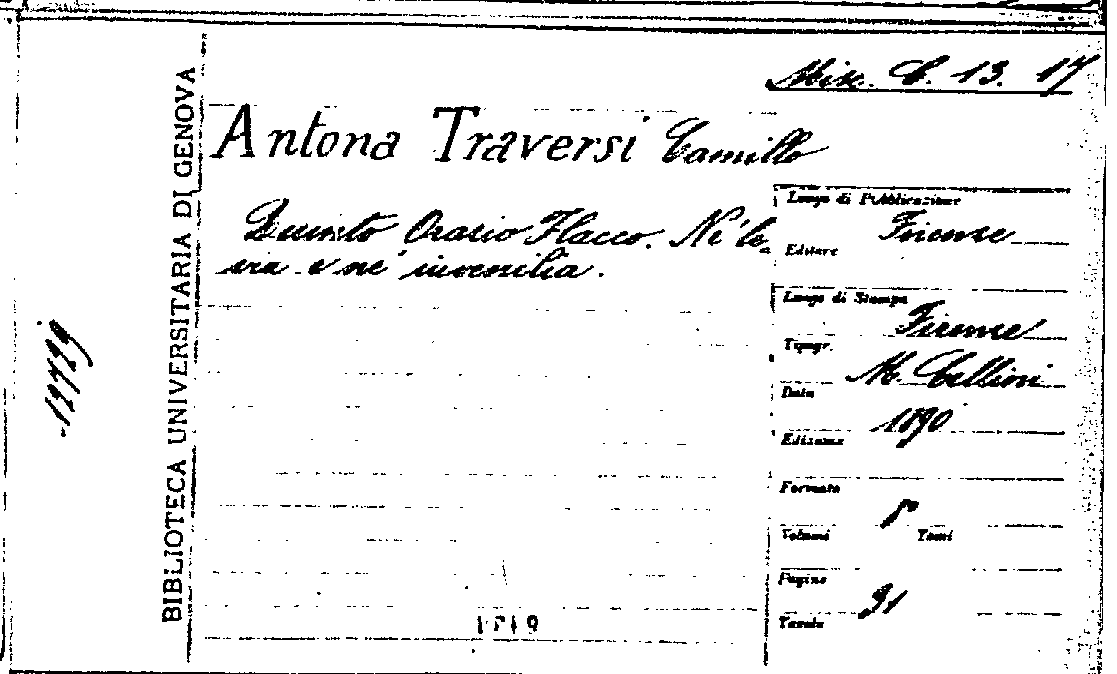 Misc. C. 13. 17
Antona Traversi Camillo
Quinto Orazio Flacco. Nè le
via e nè iuvenilia.
Luogo di Pubblicazione
Firenze
Editore
Luogo di Stampa
Firenze
Tipogr.
M. Cellini
Data
1890
Edizione
Formato
8°
Volumi Tomi
Pagine
31
Tavole
BIBLIOTECA UNIVERSITARIA DI GENOVA